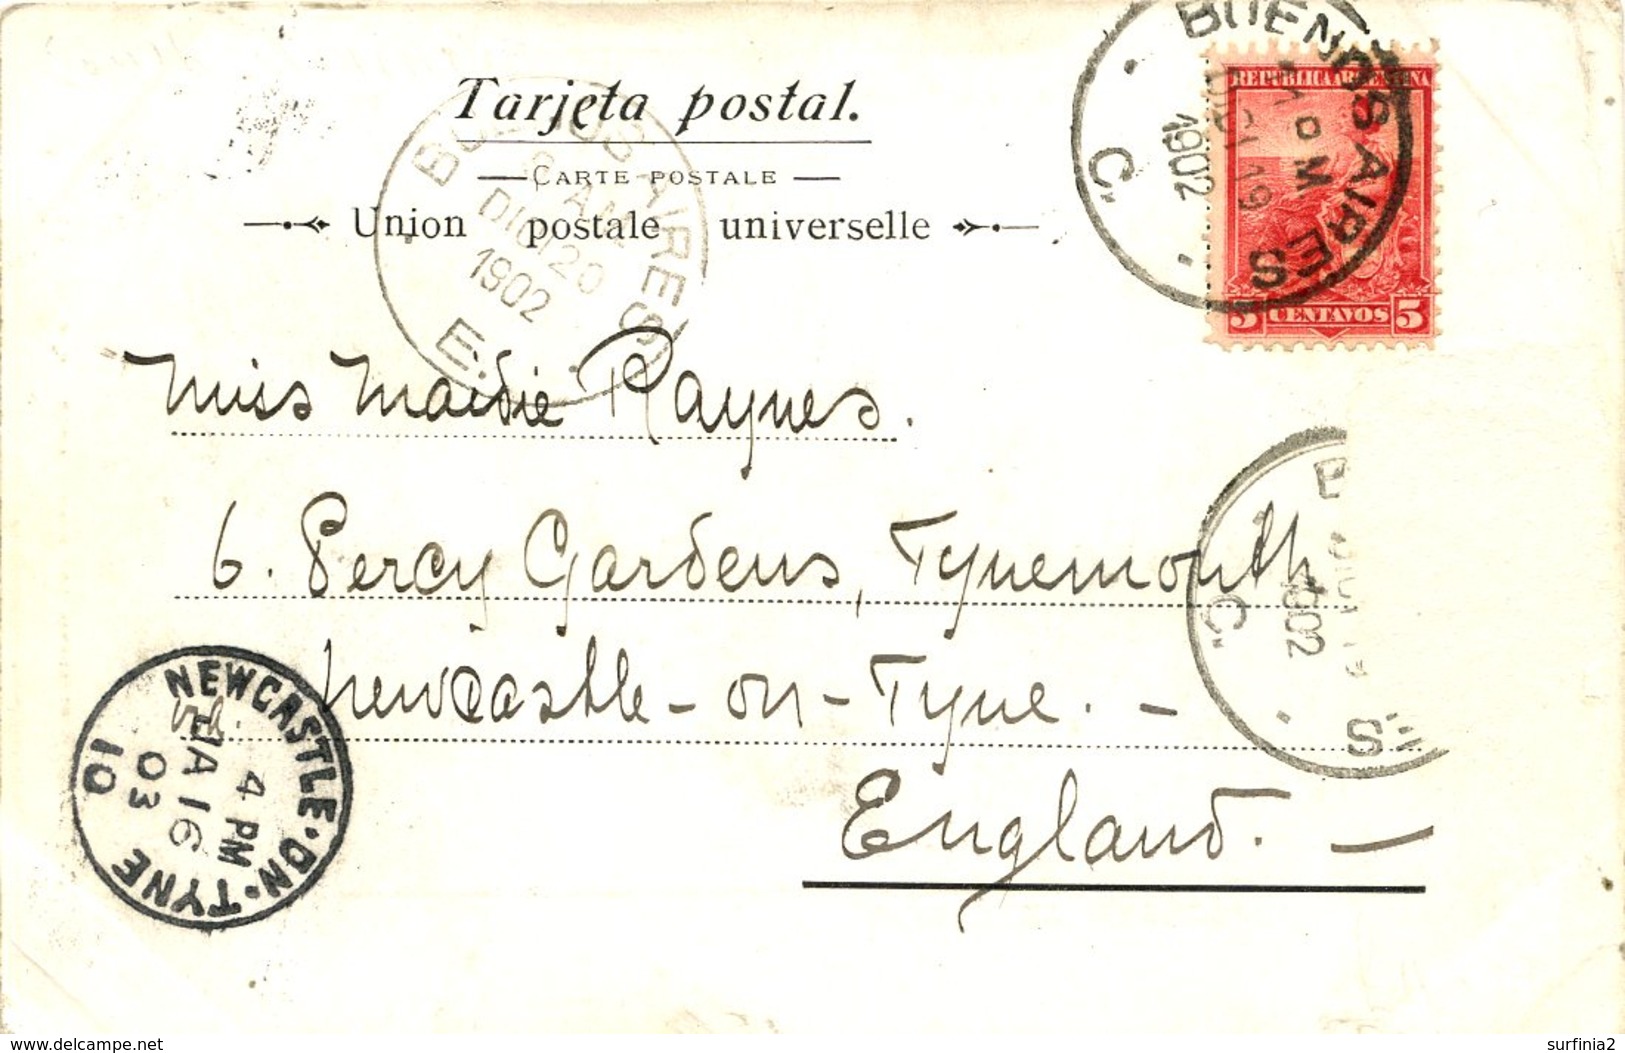 Tarjeta postal.
CARTE POSTALE
Union postale universelle
BUENOS AIRES
1 PM
DIC 19
1902
C.
REPUBLICA ARGENTINA
5 CENTAVOS 5
BUENOS AIRES
8 AM
DIC 20
1902
E.
Miss Maidie Raynes.
6. Percy Gardens, Tynemouth
Newcastle-on-Tyne. -
England. -
1902
C.
ES
NEWCASTLE·ON·TYNE
4 PM
JA 16
03
10
www.delcampe.net
surfinia2